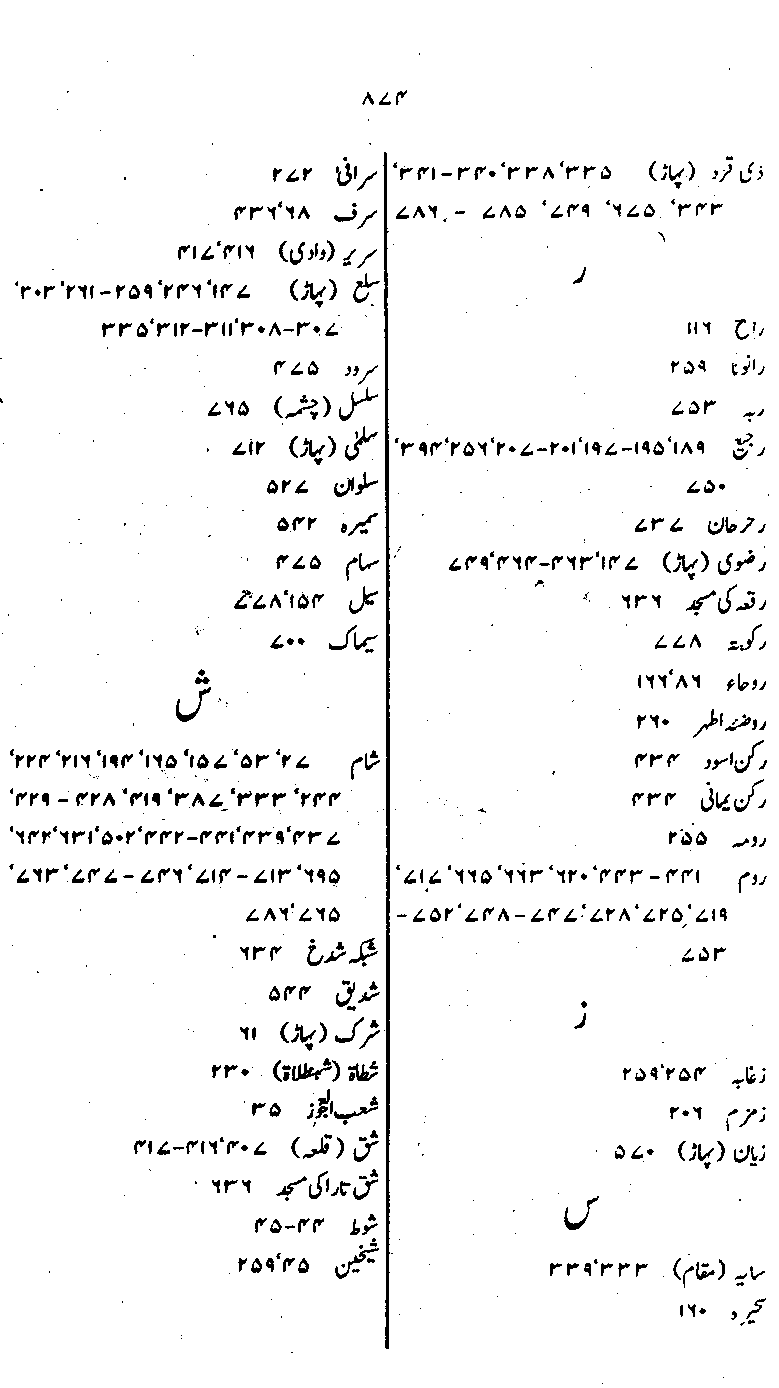 ۸۷۴
ذی قرد (پہاڑ) ۳۳۵، ۳۳۸، ۳۴۰-۳۴۱،
۳۴۳، ۶۷۵، ۷۴۹، ۷۸۵ - ۷۸۶
ر
راح ۱۱۶
رانونا ۲۵۹
ربہ ۷۵۳
رجیع ۱۸۹، ۱۹۵-۱۹۷، ۲۰۱-۲۰۷، ۲۵۶، ۳۹۴،
۷۵۰
رحرحان ۷۳۷
رضوی (پہاڑ) ۱۴۷، ۴۶۳-۴۶۴، ۷۴۹
رقعہ کی مسجد ۶۳۶
رکوبۃ ۷۷۸
روحاء ۸۶، ۱۶۶
روضۂ اطہر ۲۶۰
رکن اسود ۴۳۴
رکن یمانی ۴۳۴
رومہ ۲۵۵
روم ۴۴۱ - ۴۴۳، ۶۲۰، ۶۶۳، ۶۶۵، ۷۱۷،
۷۱۹، ۷۲۵، ۷۲۸، ۷۴۷-۷۴۸، ۷۵۲-
۷۵۳
ز
زغابہ ۲۵۴، ۲۵۹
زمزم ۲۰۶
زیان (پہاڑ) ۵۷۰
س
سایہ (مقام) ۳۳۳، ۳۳۹
۱۶۰
سرافیٔ ۲۷۲
سرف ۶۸، ۴۳۶
سریر (وادی) ۴۱۶، ۴۱۷
سلع (پہاڑ) ۱۴۷، ۲۴۶، ۲۵۹-۲۶۱، ۳۰۳،
۳۰۷-۳۰۸، ۳۱۱-۳۱۲، ۳۳۵
سرود ۴۷۵
سلسل (چشمہ) ۷۶۵
سلمٰی (پہاڑ) ۷۱۲
سلوان ۵۲۷
سمیرہ ۵۴۲
سہام ۴۷۵
سیل ۱۵۴، ۷۷۸
سیماک ۷۰۰
ش
شام ۲۷، ۵۳، ۱۵۷، ۱۶۵، ۱۹۴، ۲۱۶، ۲۲۴،
۲۴۴، ۳۳۳، ۳۸۷، ۴۱۹، ۴۲۸ - ۴۲۹،
۴۳۷، ۴۳۹، ۴۴۱-۴۴۲، ۵۰۲، ۶۳۱، ۶۴۲،
۶۹۵، ۷۱۳ - ۷۱۴، ۷۴۶ - ۷۴۷، ۷۶۳،
۷۶۵، ۷۸۶
شبکہ شدخ ۶۳۴
شدیق ۵۴۴
شرک (پہاڑ) ۶۱
شطاۃ ۲۳۰
شعب العجوز ۳۵
شق (قلعہ) ۴۰۷، ۴۱۶-۴۱۷
شق تارا کی مسجد ۶۳۶
شوط ۴۴-۴۵
شیخین ۴۵، ۲۵۹